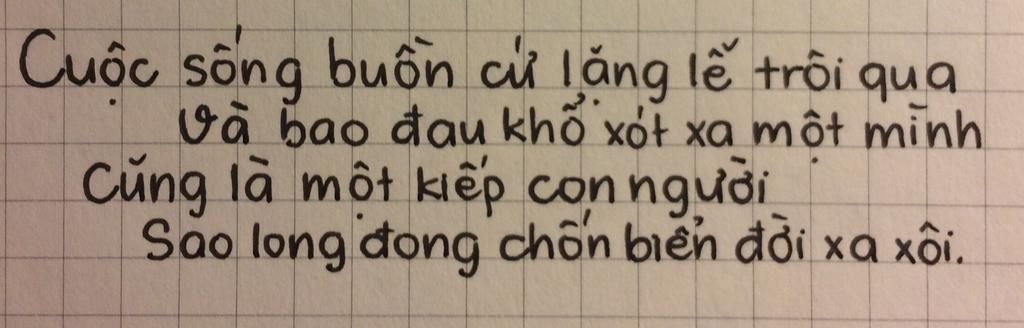 Cuộc sống buồn cứ lặng lẽ trôi qua
và bao đau khổ xót xa một mình
Cũng là một kiếp con người
Sao long đong chốn biển đời xa xôi.